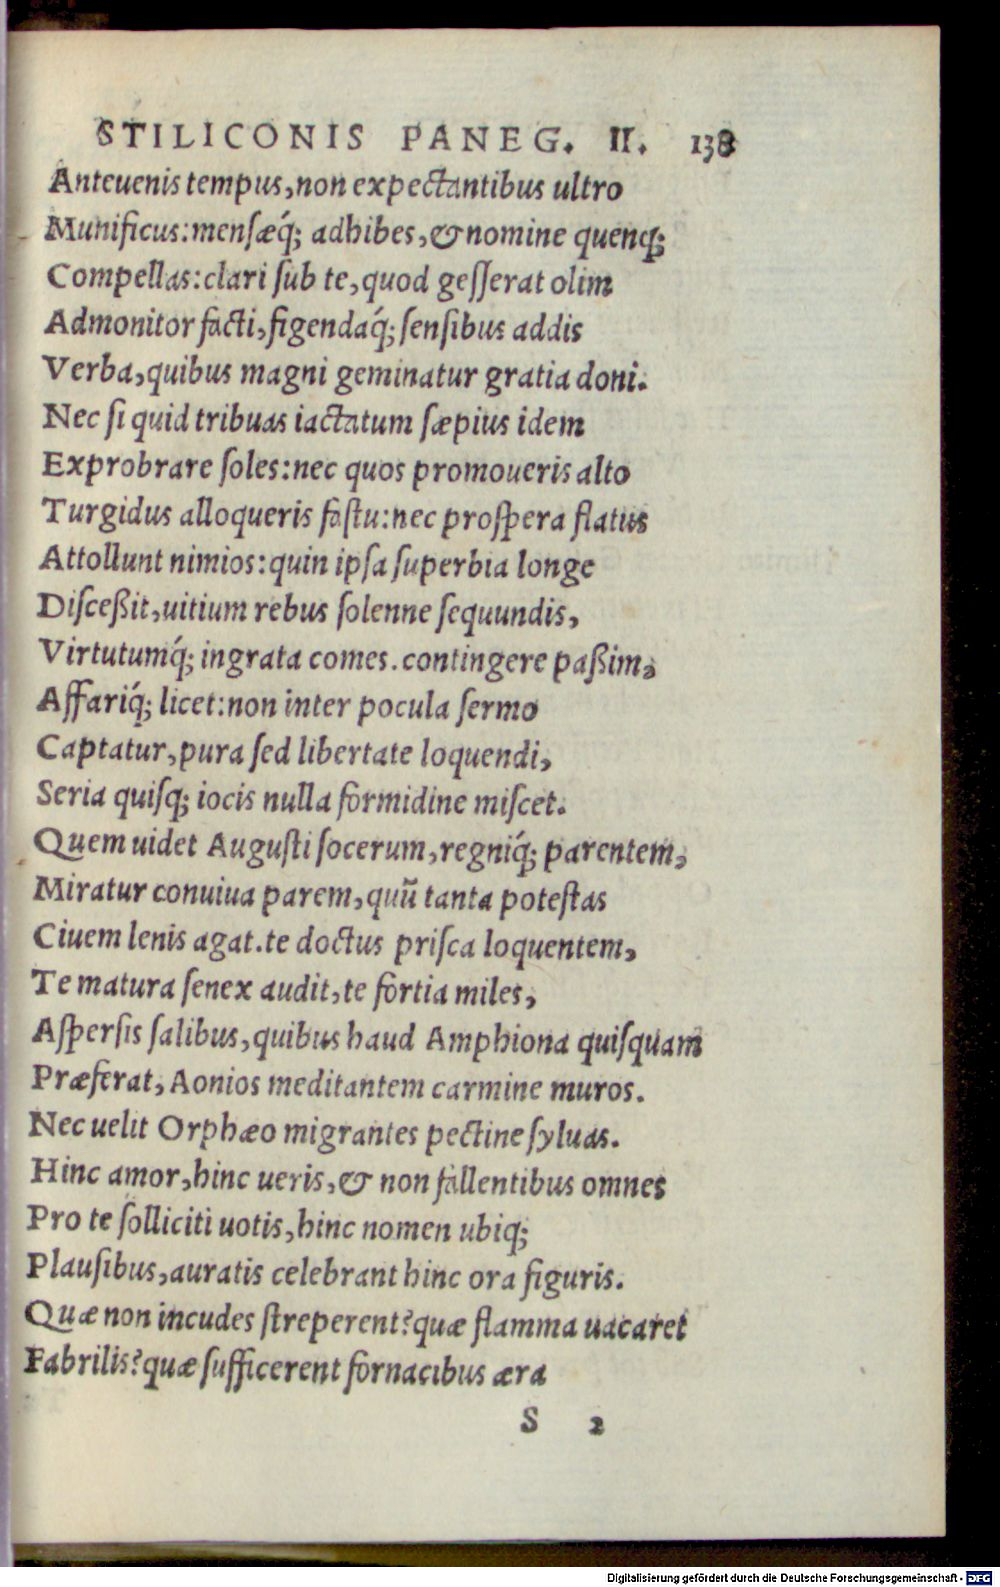 STILICONIS PANEG. II. 138
Anteuenis tempus, non expectantibus ultro
Munificus: mensæq́; adhibes, & nomine quenq;
Compellas: clari sub te, quod gesserat olim
Admonitor facti, figendaq́; sensibus addis
Verba, quibus magni geminatur gratia doni.
Nec si quid tribuas iactatum sæpius idem
Exprobrare soles: nec quos promoueris alto
Turgidus alloqueris fastu: nec prospera flatus
Attollunt nimios: quin ipsa superbia longe
Disceßit, uitium rebus solenne sequundis,
Virtutumq́; ingrata comes. contingere paßim,
Affariq́; licet: non inter pocula sermo
Captatur, pura sed libertate loquendi,
Seria quisq; iocis nulla formidine miscet.
Quem uidet Augusti socerum, regniq́; parentem,
Miratur conuiua parem, quũ tanta potestas
Ciuem lenis agat. te doctus prisca loquentem,
Te matura senex audit, te fortia miles,
Aspersis salibus, quibus haud Amphiona quisquam
Præferat, Aonios meditantem carmine muros.
Nec uelit Orphæo migrantes pectine syluas.
Hinc amor, hinc ueris, & non fallentibus omnes
Pro te solliciti uotis, hinc nomen ubiq;
Plausibus, auratis celebrant hinc ora figuris.
Quæ non incudes streperent? quæ flamma uacaret
Fabrilis? quæ sufficerent fornacibus æra
S 2
Digitalisierung gefördert durch die Deutsche Forschungsgemeinschaft - DFG